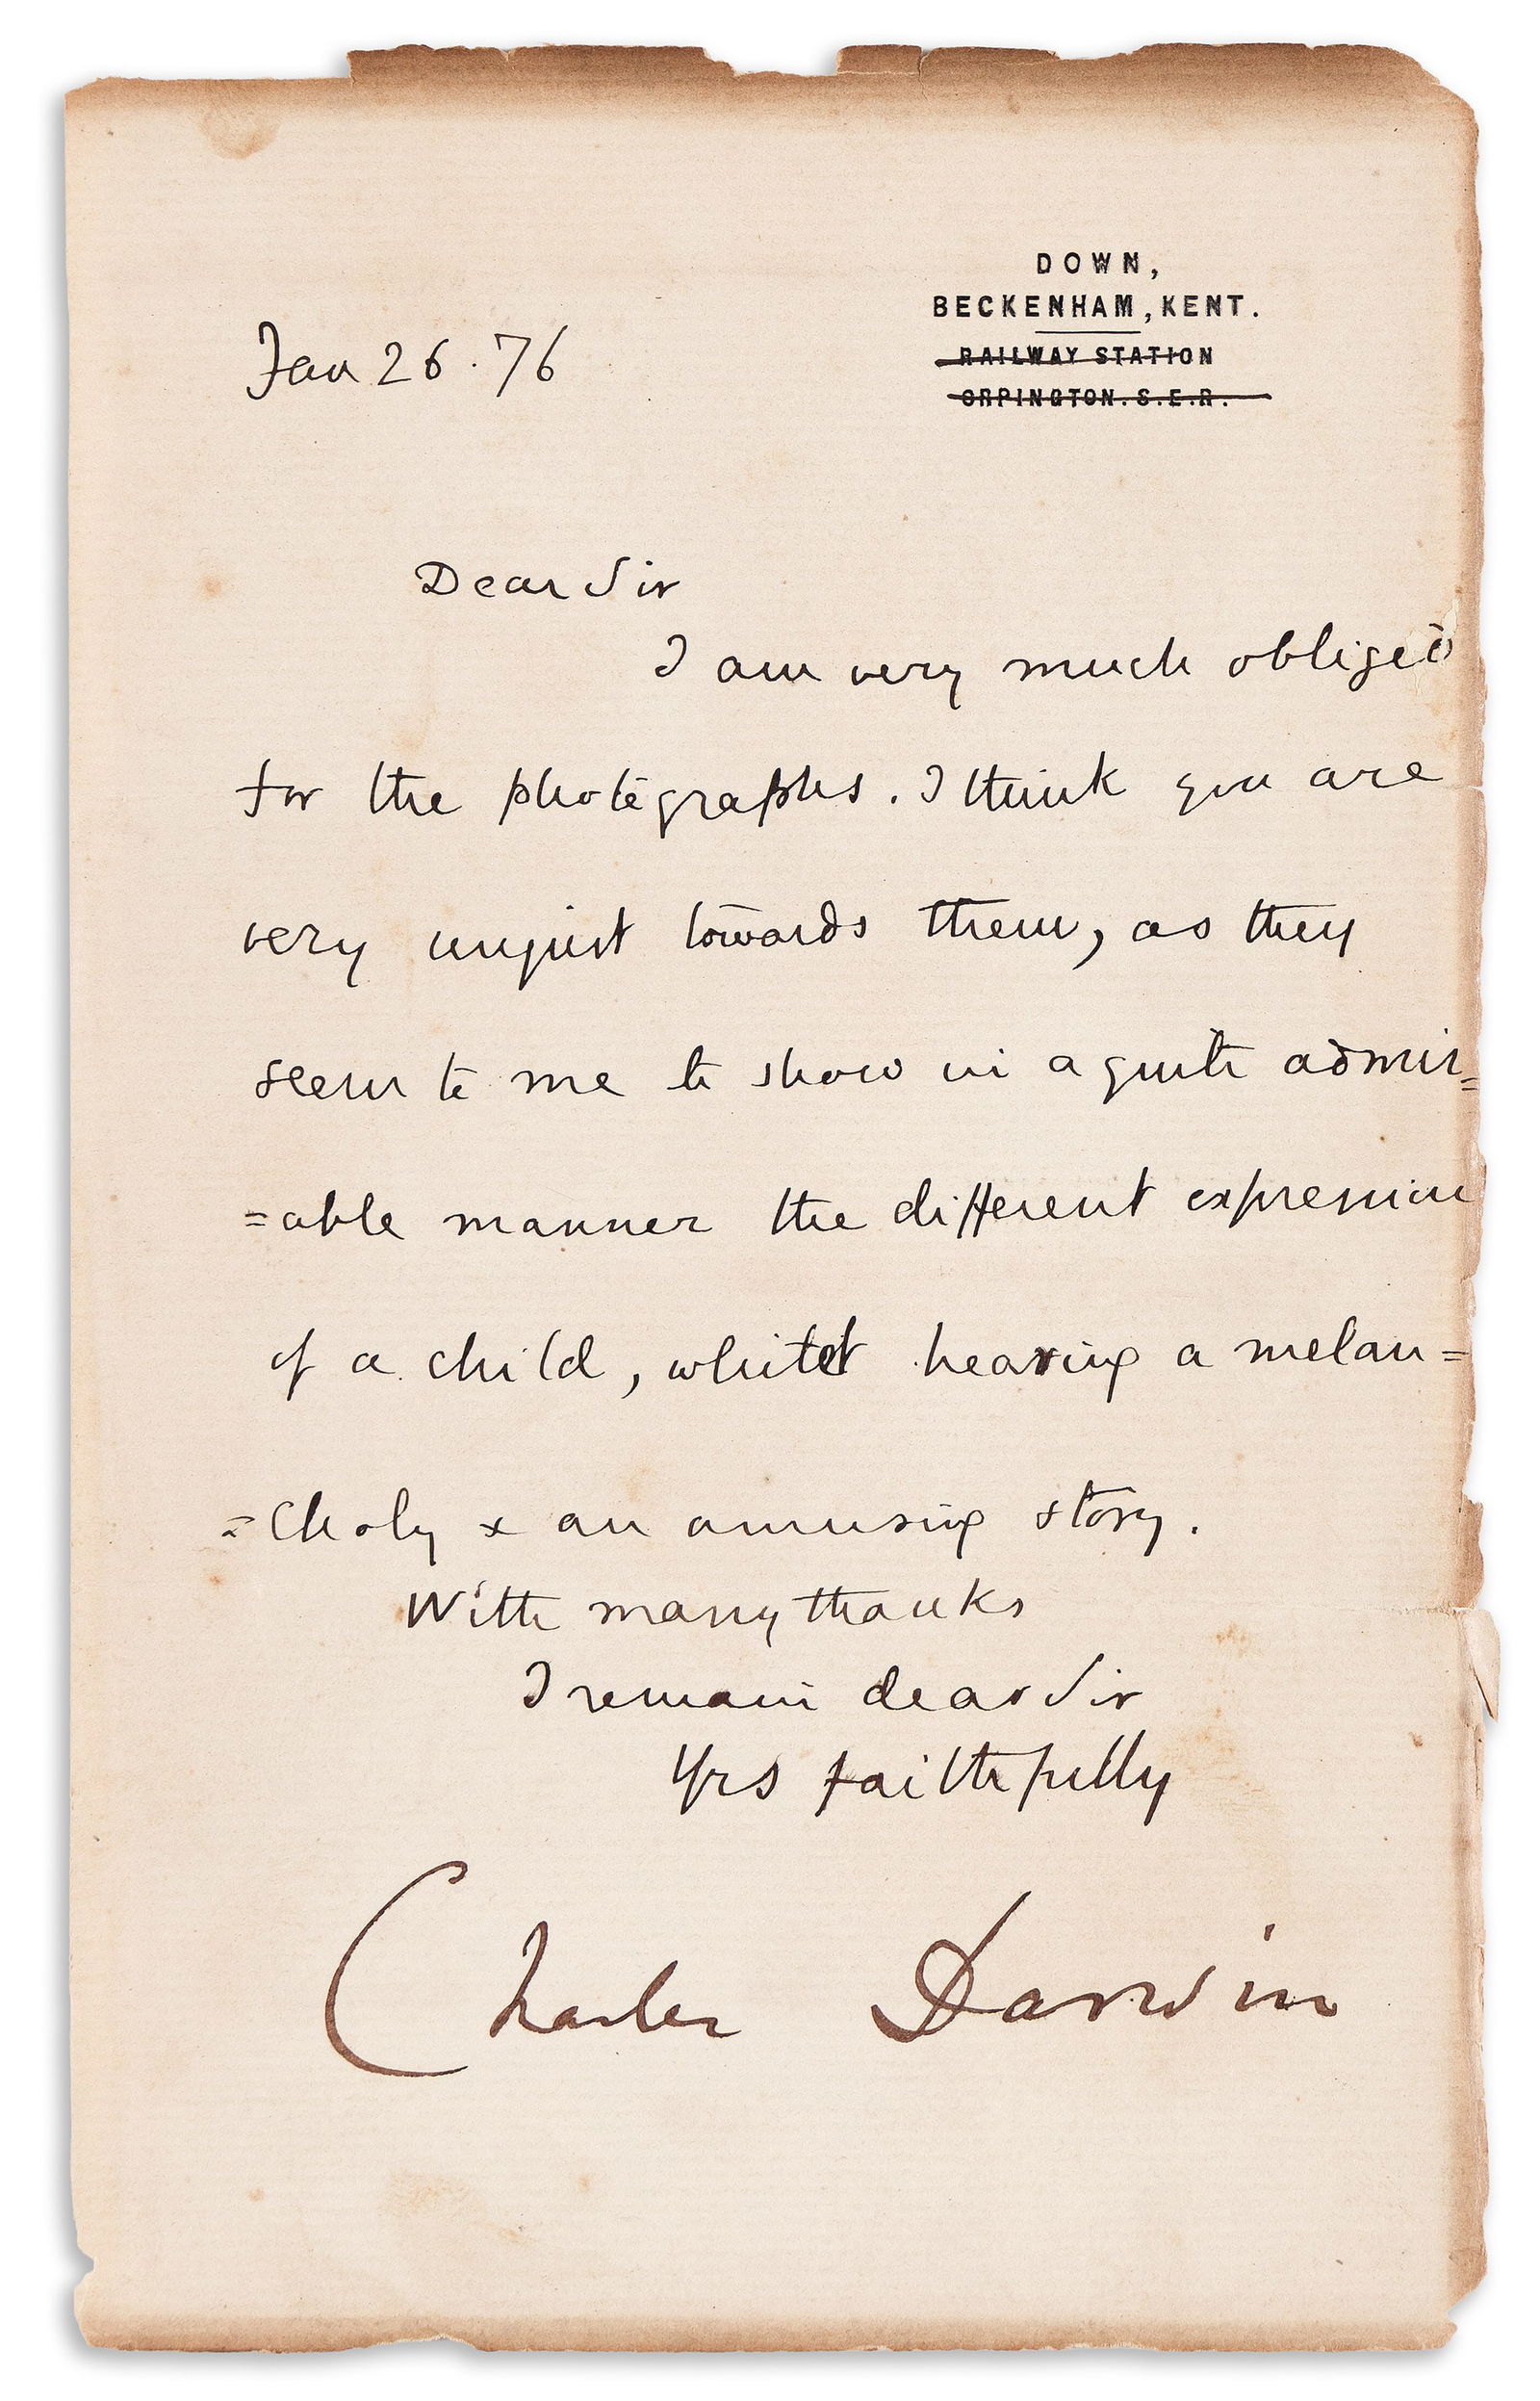 DOWN,
BECKENHAM, KENT.
RAILWAY STATION
ORPINGTON. S.E.R.
Jan 26. 76
Dear Sir
I am very much obliged
for the photographs. I think you are
very unjust towards them, as they
seem to me to show in a quite admir=
=able manner the different expression
of a child, whilst hearing a melan=
=choly & an amusing story.
With many thanks
I remain dear Sir
Yrs faithfully
Charles Darwin